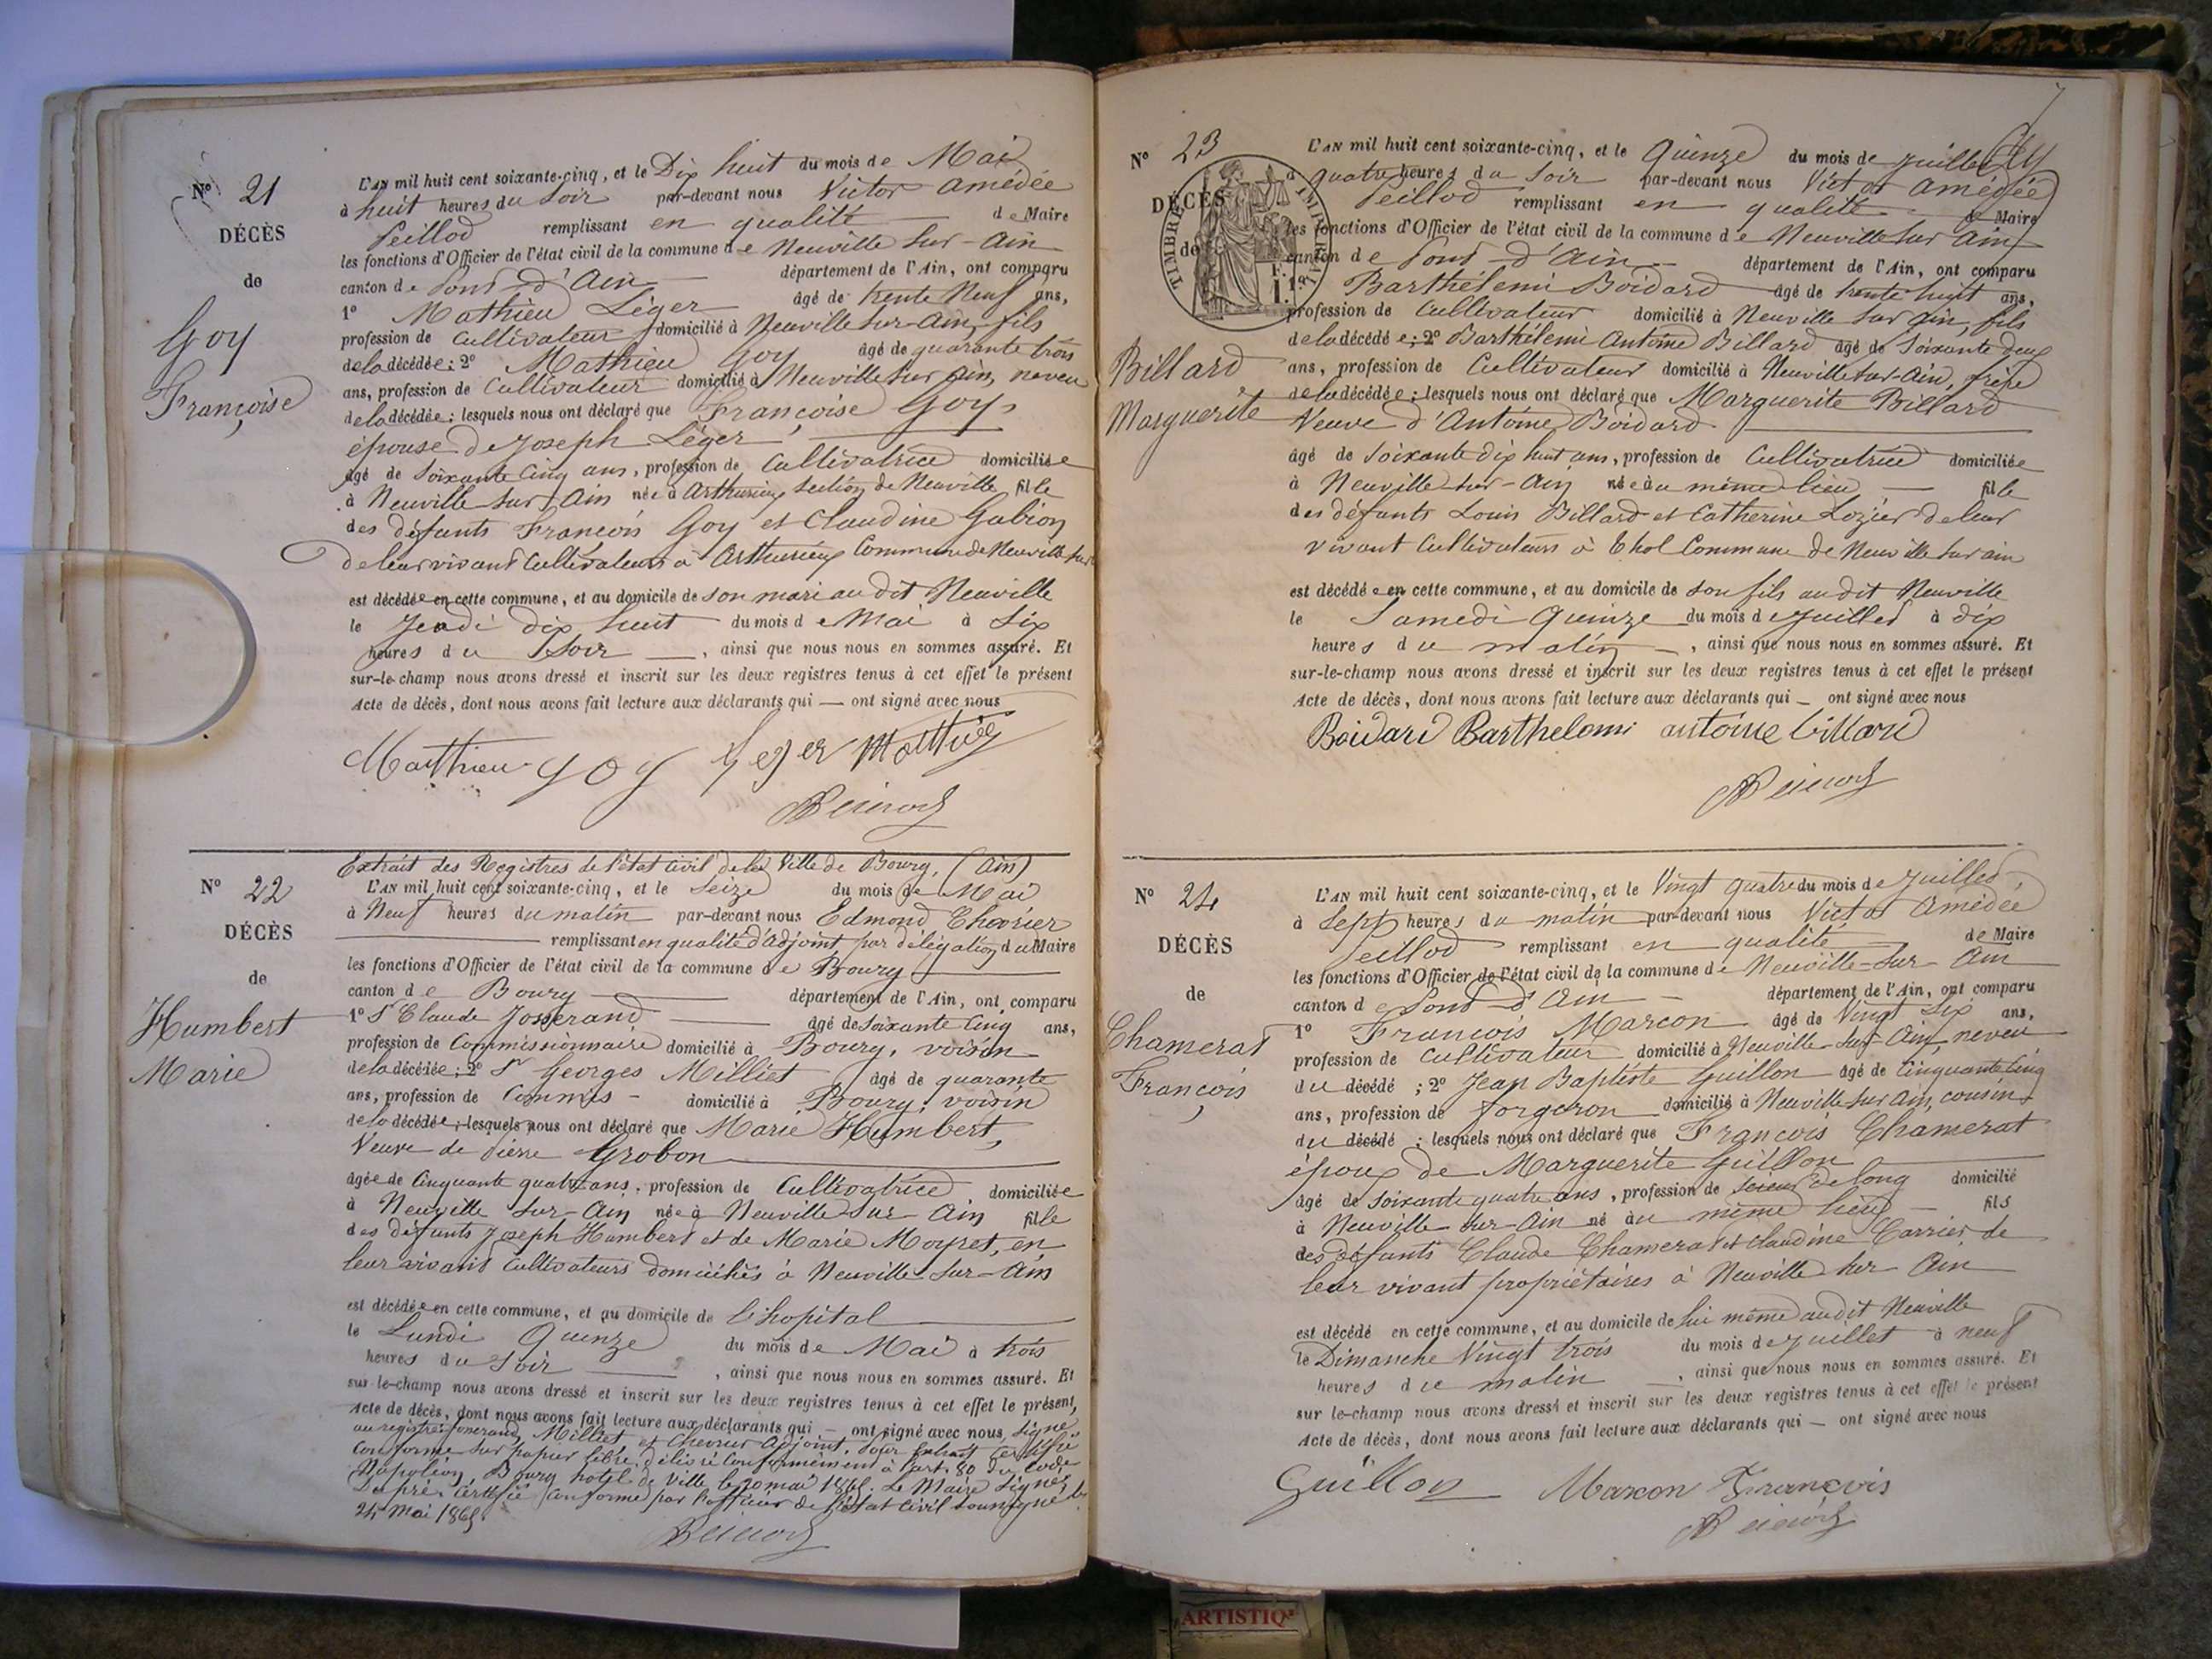 Nº 21
DÉCÈS
de
Goy
Françoise
L'AN mil huit cent soixante-cinq, et le Dix huit du mois de Mai
à huit heures du Soir par-devant nous Victor Amédée
Peillod remplissant en qualité de Maire
les fonctions d'Officier de l'état civil de la commune de Neuville sur-Ain
canton de Pont-d'Ain département de l'Ain, ont comparu
1º Mathieu Léger âgé de trente Neuf ans,
profession de Cultivateur domicilié à Neuville sur-Ain, fils
de la décédée; 2º Mathieu Goy âgé de quarante trois
ans, profession de Cultivateur domicilié à Neuville sur Ain, neveu
de la décédée; lesquels nous ont déclaré que Françoise Goy,
épouse de Joseph Léger,
âgé de soixante Cinq ans, profession de Cultivatrice domiciliée
à Neuville sur Ain née à section de Neuville fille
des défunts François Goy et Claudine Gabion
de leur vivant Cultivateurs à Commune de Neuville sur
est décédée en cette commune, et au domicile de son mari au dit Neuville
le Jeudi dix huit du mois de Mai à Six
heures du Soir, ainsi que nous nous en sommes assuré. Et
sur-le-champ nous avons dressé et inscrit sur les deux registres tenus à cet effet le présent
Acte de décès, dont nous avons fait lecture aux déclarants qui — ont signé avec nous
Matthieu goy Leger Matthieu
Peillod
Nº 22
DÉCÈS
de
Humbert
Marie
Extrait des Registres de l'état Civil de la Ville de Bourg, (Ain)
L'AN mil huit cent soixante-cinq, et le seize du mois de Mai
à Neuf heures du matin par-devant nous Edmond Chevrier
remplissant en qualité d'adjoint par délégation du Maire
les fonctions d'Officier de l'état civil de la commune de Bourg
canton de Bourg département de l'Ain, ont comparu
1º Sr Claude Josserand âgé de soixante Cinq ans,
profession de Commissionnaire domicilié à Bourg, voisin
de la décédée; 2º Sr Georges Milliet âgé de quarante
ans, profession de Commis - domicilié à Bourg, voisin
de la décédée; lesquels nous ont déclaré que Marie Humbert,
Veuve de Pierre Grobon
âgée de Cinquante quatre ans, profession de Cultivatrice, domiciliée
à Neuville sur-Ain née à Neuville sur Ain fille
des défunts Joseph Humbert et de Marie Moyret, en
leur vivant Cultivateurs domiciliés à Neuville sur-Ain
est décédée en cette commune, et au domicile de l'hopital
le Lundi Quinze du mois de Mai à trois
heures du Soir, ainsi que nous nous en sommes assuré. Et
sur-le-champ nous avons dressé et inscrit sur les deux registres tenus à cet effet le présent,
Acte de décès, dont nous avons fait lecture aux déclarants qui — ont signé avec nous, Signé
au registre: Josserand, Milliet et Chevrier adjoint. Pour Extrait Certifié
Conforme sur papier libre, délivré Conformément à l'art. 80 du Code
Napoléon, Bourg hotel de Ville le 20 mai 1865. Le Maire Signé,
Certifié Conforme par l'officier de l'état Civil soussigné le
24 Mai 1865.
Peillod
Nº 23
DÉCÈS
de
Billard
Marguerite
TIMBRE IMPERIAL
1 F.
L'AN mil huit cent soixante-cinq, et le Quinze du mois de Juillet
à quatre heures du Soir par-devant nous Victor Amédée
Peillod remplissant en qualité de Maire
les fonctions d'Officier de l'état civil de la commune de Neuville sur Ain
canton de Pont-d'Ain département de l'Ain, ont comparu
1º Barthélemi Boidard âgé de trente huit ans,
profession de Cultivateur domicilié à Neuville sur Ain, fils
de la décédée; 2º Barthélemi Antoine Billard âgé de Soixante deux
ans, profession de Cultivateur domicilié à Neuville sur-Ain, frère
de la décédée; lesquels nous ont déclaré que Marguerite Billard
Veuve d'Antoine Boidard
âgé de soixante dix huit ans, profession de Cultivatrice domiciliée
à Neuville sur-Ain née au même lieu — fille
des défunts Louis Billard et Catherine Lozier de leur
vivant Cultivateurs à Thol Commune de Neuville sur ain
est décédée en cette commune, et au domicile de son fils au dit Neuville
le Samedi Quinze du mois de Juillet à dix
heures du matin, ainsi que nous nous en sommes assuré. Et
sur-le-champ nous avons dressé et inscrit sur les deux registres tenus à cet effet le présent
Acte de décès, dont nous avons fait lecture aux déclarants qui — ont signé avec nous
Boidard Barthelomi antoine billard
Peillod
Nº 24
DÉCÈS
de
Chamerat
François
L'AN mil huit cent soixante-cinq, et le Vingt quatre du mois de Juillet
à Sept heures du matin par-devant nous Victor Amédée
Peillod remplissant en qualité de Maire
les fonctions d'Officier de l'état civil de la commune de Neuville-sur-Ain
canton de Pont d'Ain — département de l'Ain, ont comparu
1º François Marcon âgé de Vingt Six ans,
profession de Cultivateur domicilié à Neuville-sur-Ain, neveu
du décédé; 2º Jean Baptiste Guillon âgé de Cinquante Cinq
ans, profession de forgeron domicilié à Neuville sur Ain, cousin
du décédé; lesquels nous ont déclaré que François Chamerat
époux de Marguerite Guillon
âgé de soixante quatre ans, profession de scieur de long domicilié
à Neuville sur-Ain né au même lieu — fils
des défunts Claude Chamerat et Claudine Carrier de
leur vivant propriétaires à Neuville sur Ain
est décédé en cette commune, et au domicile de lui même au dit Neuville
le Dimanche Vingt trois du mois de Juillet à neuf
heures du matin, ainsi que nous nous en sommes assuré. Et
sur le-champ nous avons dressé et inscrit sur les deux registres tenus à cet effet le présent
Acte de décès, dont nous avons fait lecture aux déclarants qui — ont signé avec nous
Guillon Marcon François
Peillod
ARTISTIQ